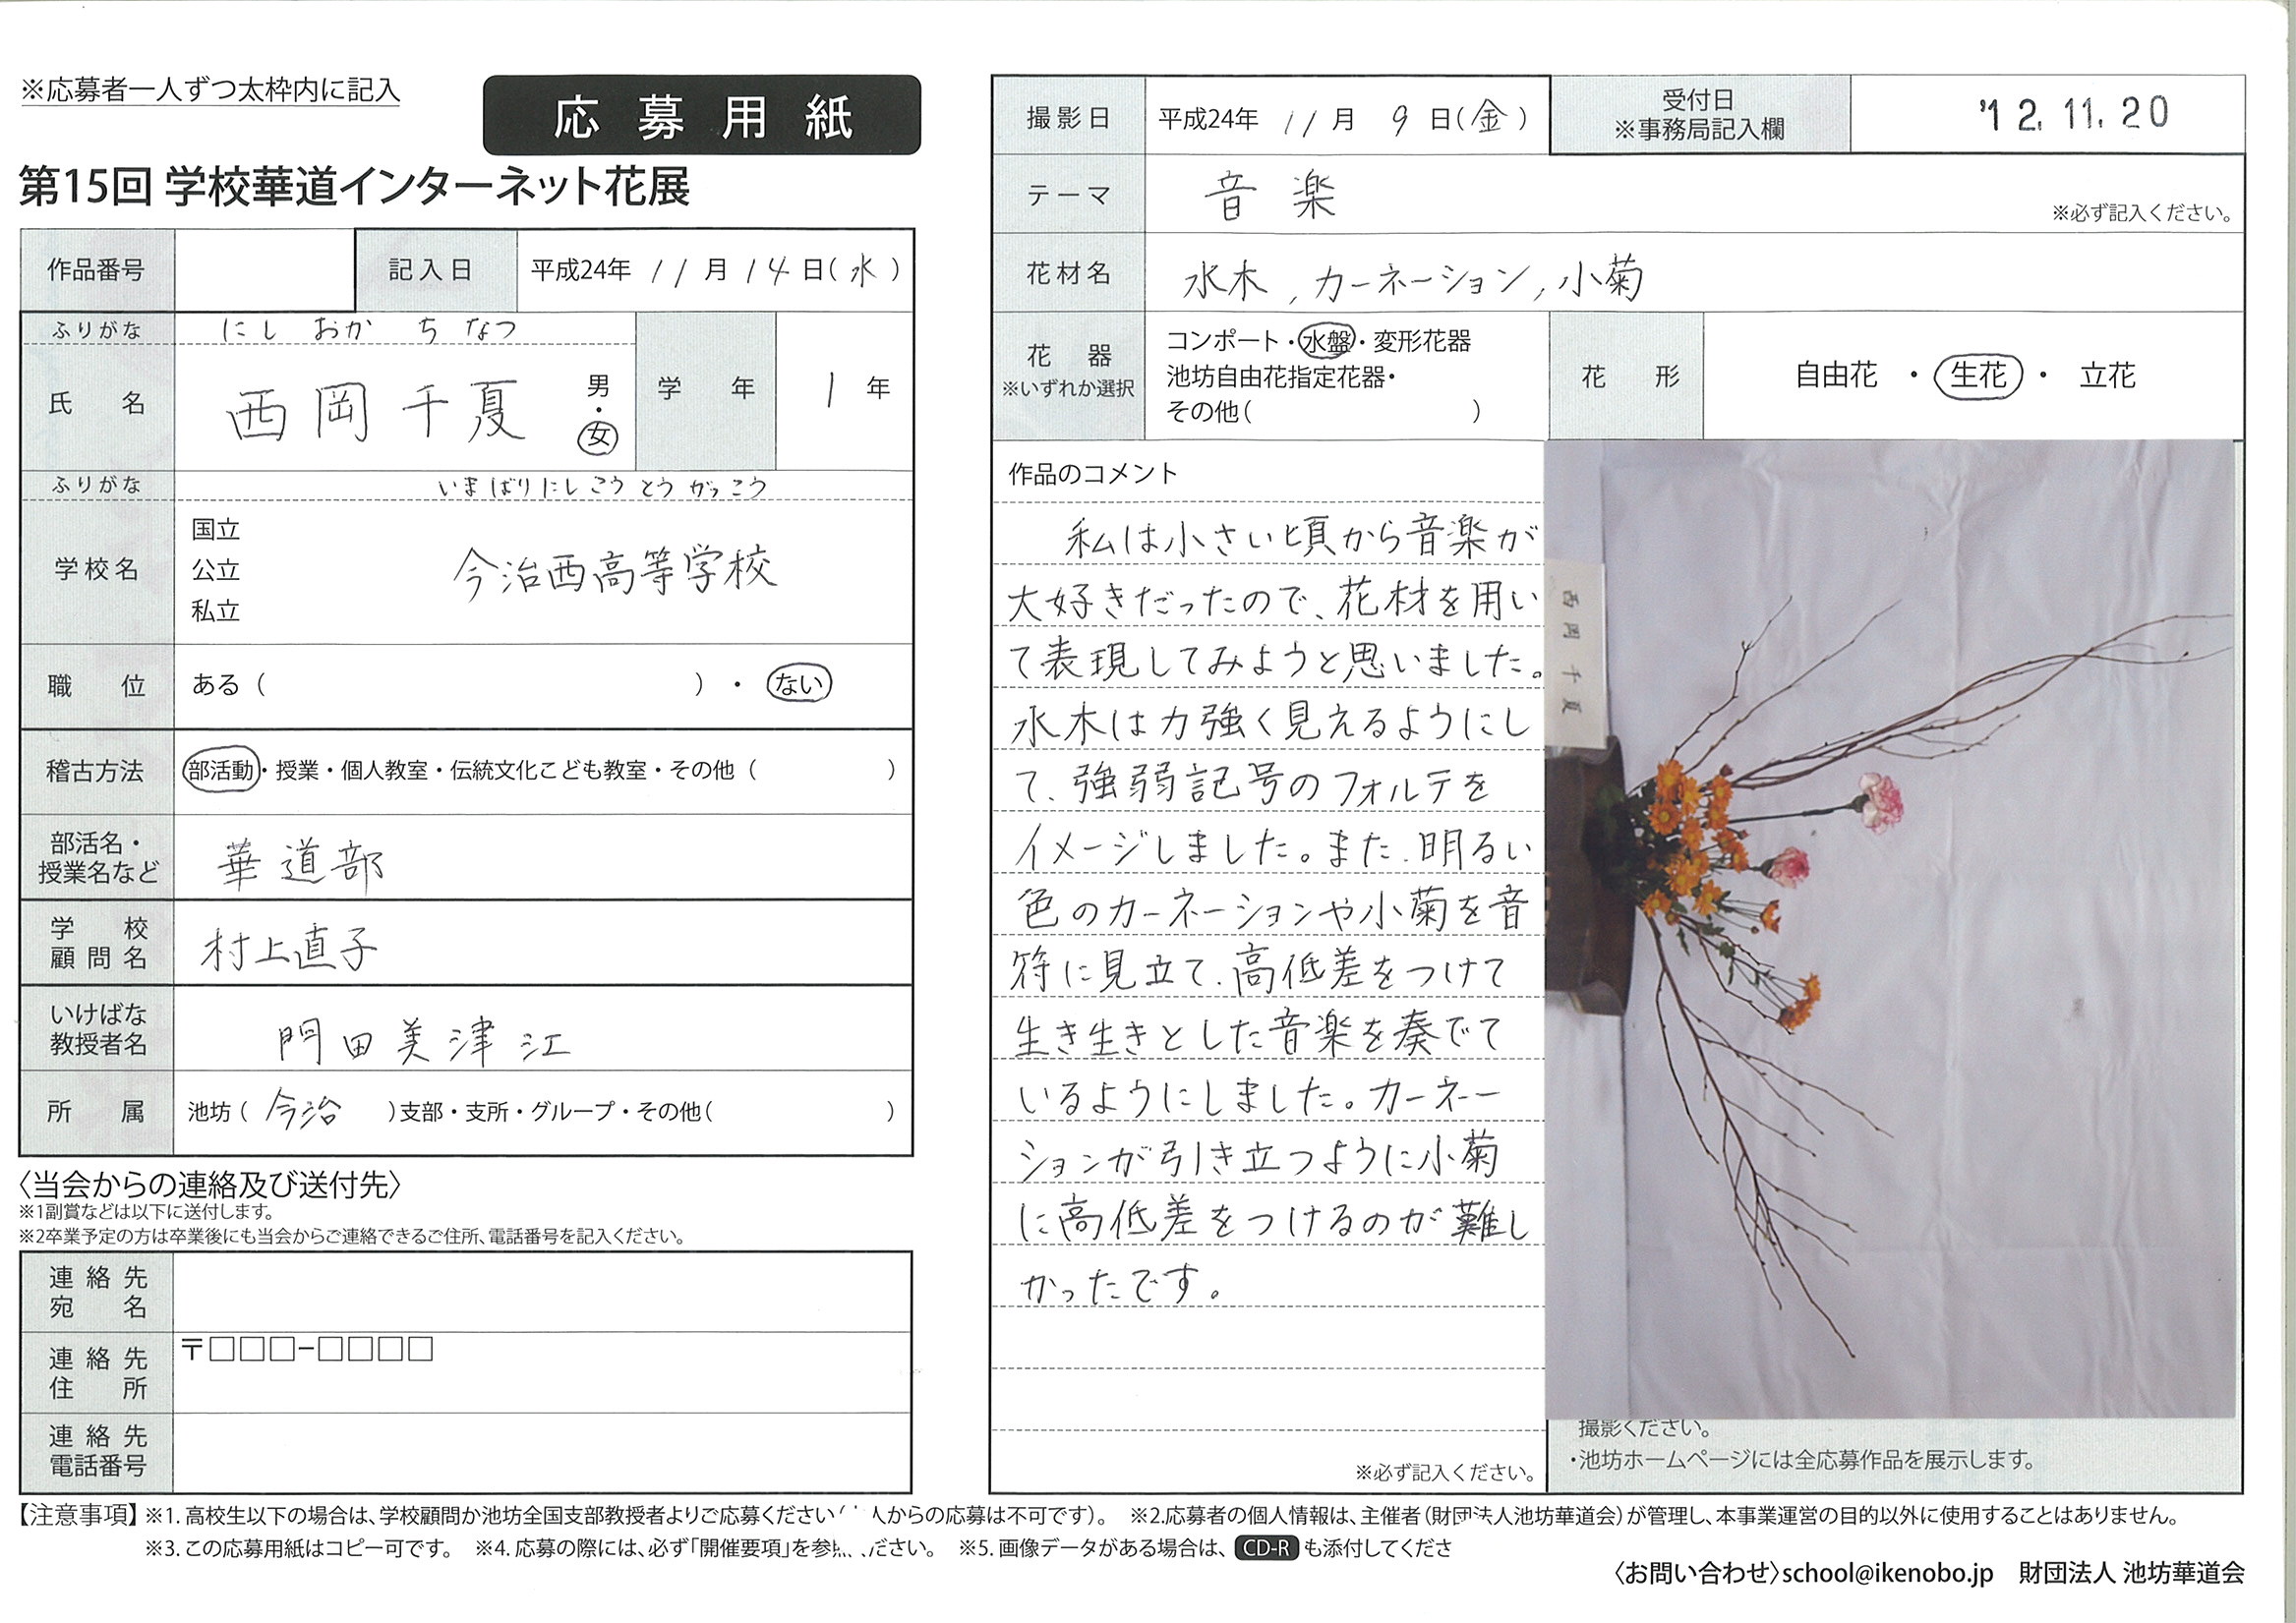 ※応募者一人ずつ太枠内に記入
応募用紙
第15回 学校華道インターネット花展
作品番号
記入日 平成24年 11月 14日(水)
ふりがな にし おか ち なつ
氏名 西岡千夏 男・女
学年 1年
ふりがな いまばりにしこうとうがっこう
学校名 国立 公立 私立 今治西高等学校
職位 ある( )・ない
稽古方法 部活動・授業・個人教室・伝統文化こども教室・その他( )
部活名・授業名など 華道部
学校顧問名 村上直子
いけばな教授者名 門田美津江
所属 池坊(今治)支部・支所・グループ・その他( )
〈当会からの連絡及び送付先〉
※1副賞などは以下に送付します。
※2卒業予定の方は卒業後にも当会からご連絡できるご住所、電話番号を記入ください。
連絡先宛名
連絡先住所 〒□□□-□□□□
連絡先電話番号
撮影日 平成24年 11月 9日(金)
受付日 ※事務局記入欄 '12.11.20
テーマ 音楽 ※必ず記入ください。
花材名 水木,カーネーション,小菊
花器 ※いずれか選択
コンポート・水盤・変形花器
池坊自由花指定花器・
その他( )
花形 自由花・生花・立花
作品のコメント
私は小さい頃から音楽が
大好きだったので、花材を用い
て表現してみようと思いました。
水木は力強く見えるようにし
て、強弱記号のフォルテを
イメージしました。また、明るい
色のカーネーションや小菊を音
符に見立て、高低差をつけて
生き生きとした音楽を奏でて
いるようにしました。カーネー
ションが引き立つように小菊
に高低差をつけるのが難し
かったです。
※必ず記入ください。
西岡千夏
撮影ください。
・池坊ホームページには全応募作品を展示します。
【注意事項】※1.高校生以下の場合は、学校顧問か池坊全国支部教授者よりご応募ください 人からの応募は不可です)。 ※2.応募者の個人情報は、主催者(財団法人池坊華道会)が管理し、本事業運営の目的以外に使用することはありません。
※3.この応募用紙はコピー可です。 ※4.応募の際には、必ず「開催要項」を参 ださい。 ※5.画像データがある場合は、CD-Rも添付してくださ
〈お問い合わせ〉school@ikenobo.jp 財団法人 池坊華道会